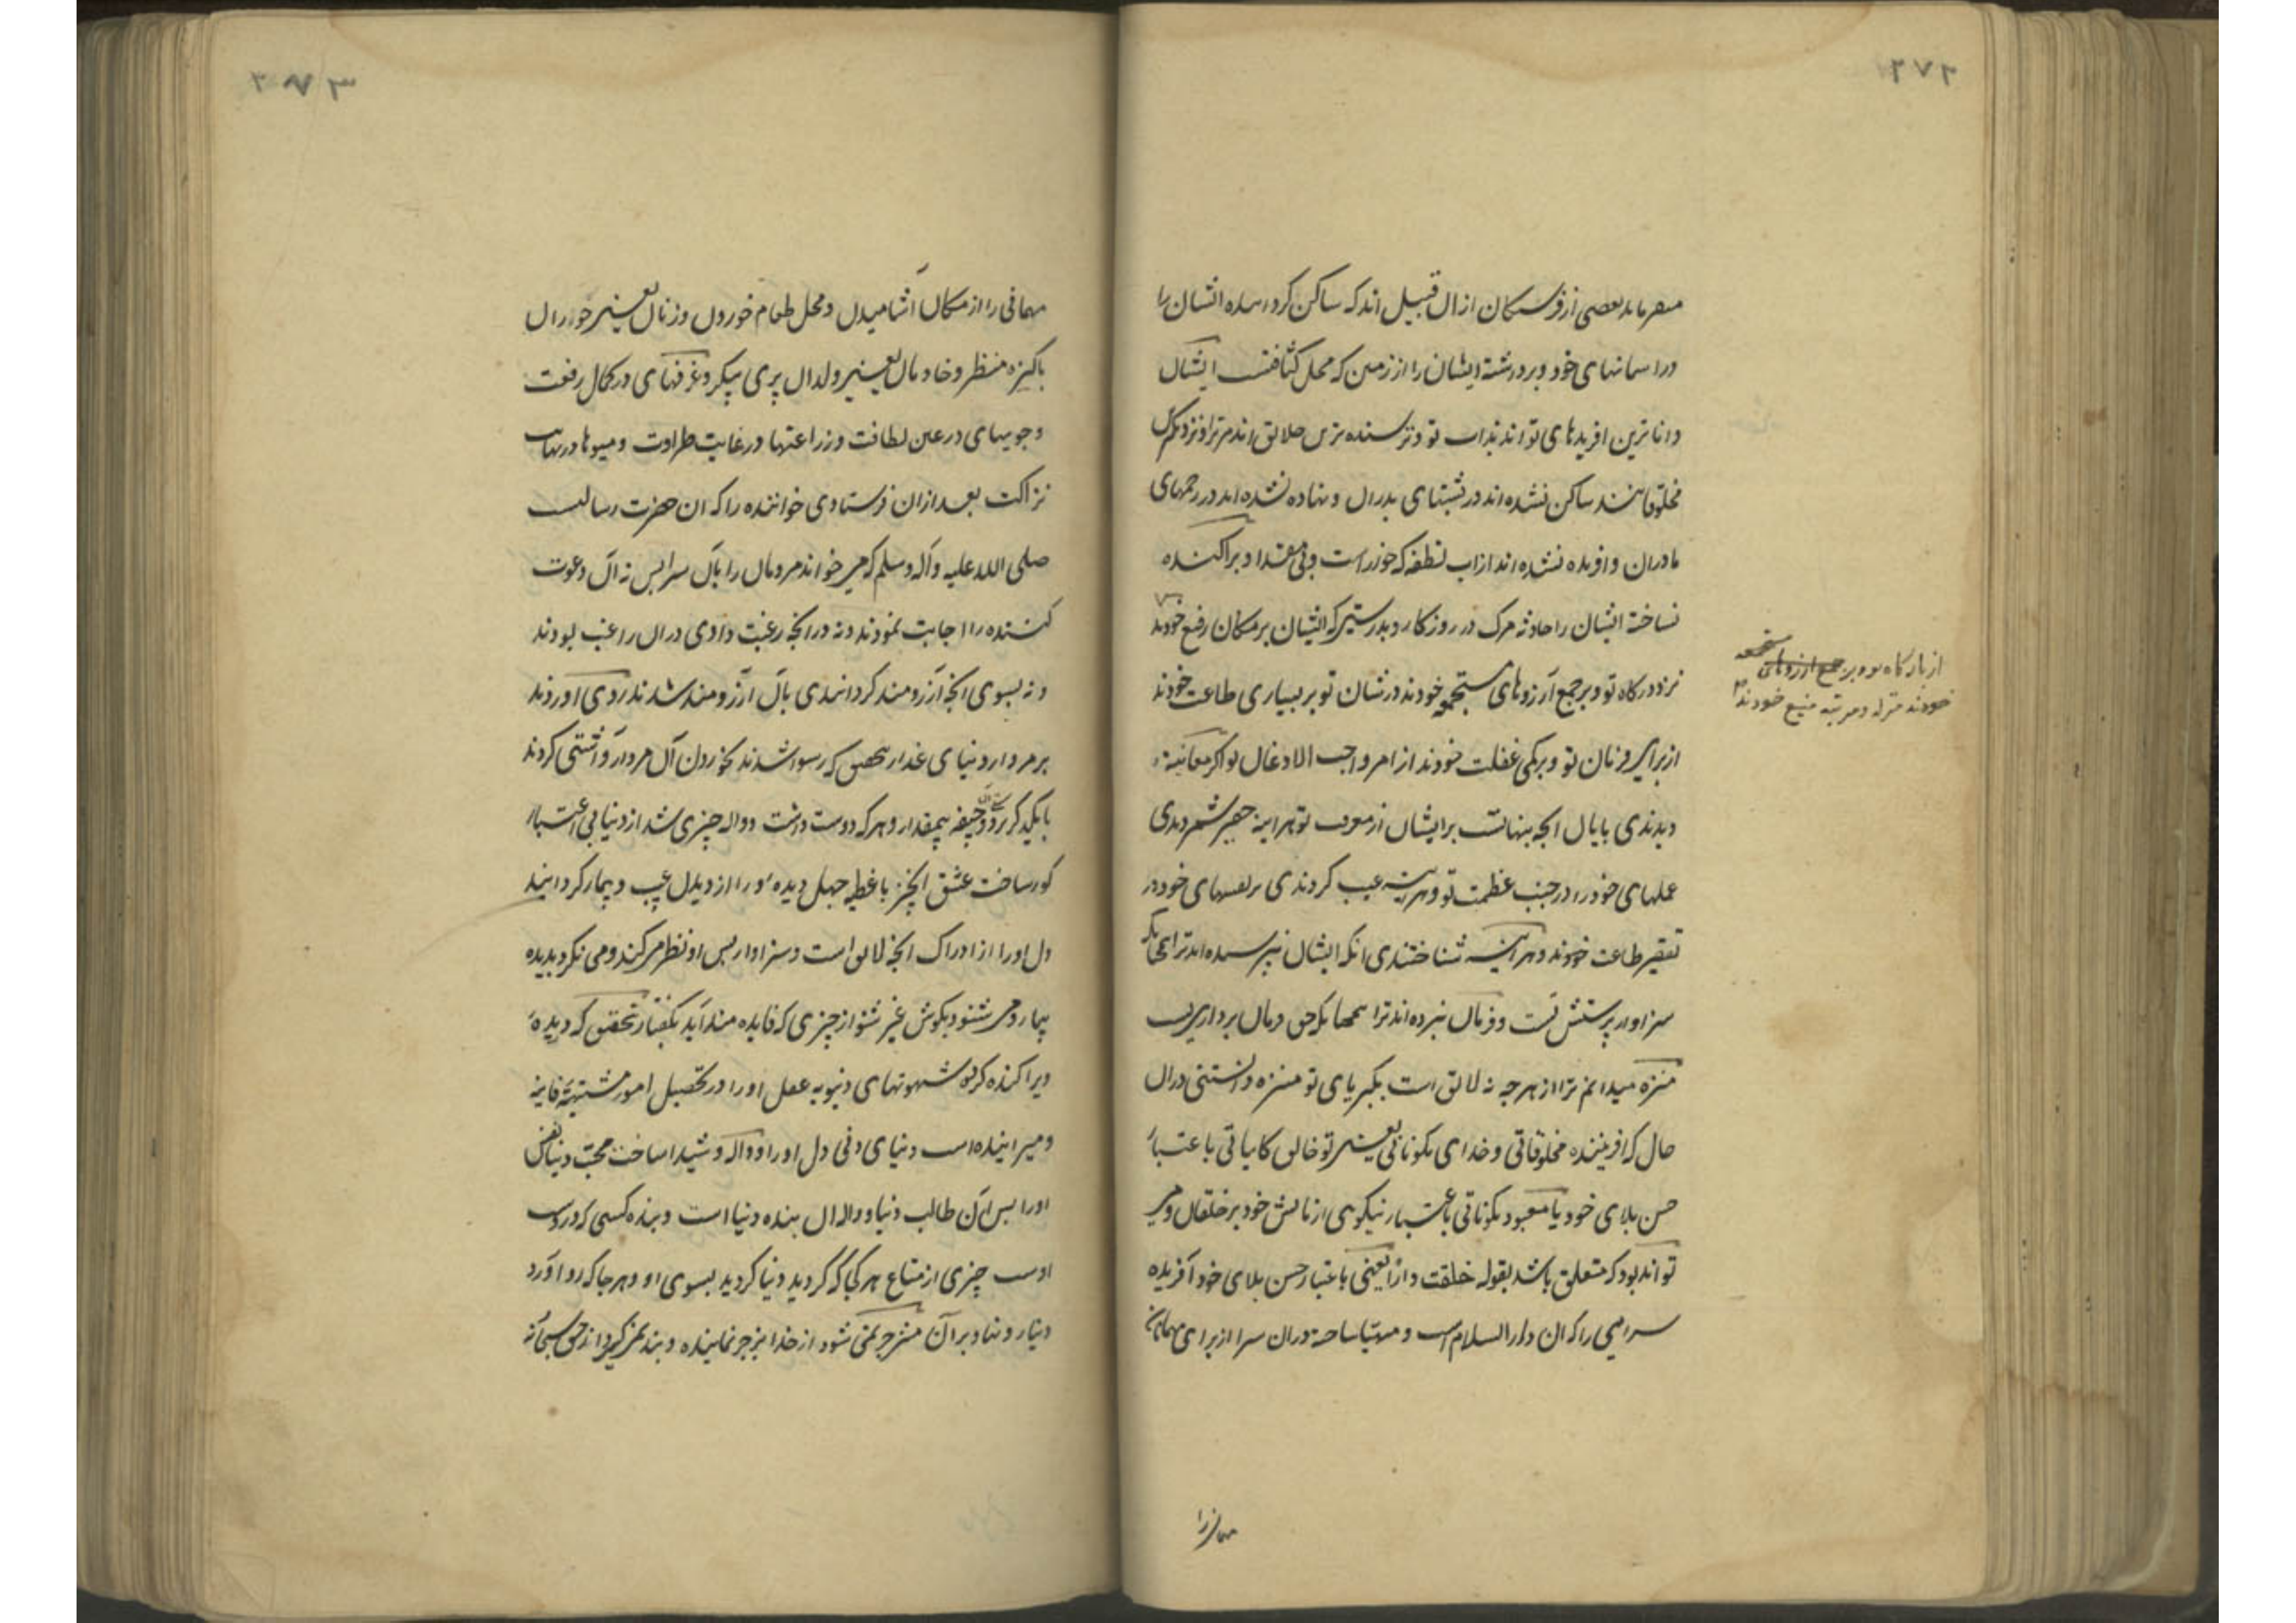 ۲۷۲
بعضی از فرشتگان ازان قبیل اند که ساکن کرده ایشان را
در اسمانهای خود و برداشته ایشان را از زمین که محل کثافتست ایشان
داناترین افریدهای تو اند بذات تو و ترسنده ترین خلایق اند مر ترا و نزدیکترین
مخلوقاتند ساکن نشده اند در پشتهای پدران و نهاده نشده اند در رحمهای
مادران و افریده نشده اند از اب نطفه که خوار است و بی مقدار و پراکنده
نساخته ایشان را حادثه مرک در روزکار و بدرستی که ایشان بر مکان رفیع خودند
نزد درکاه تو و بر جمع آرزوهای مستجمعه خودند در شان تو بر بسیاری طاعت خودند
از برای فرمان تو و بر کمی غفلت خودند از امر واجب الاذعان تو اکر معاینه
دیدندی پایان انچه پنهانست بر ایشان از معرفت تو هر اینه حقیر شمردندی
عملهای خود را در جنب عظمت تو و هر اینه عیب کردندی بر نفسهای خود در
تقصیر طاعت خود و هر آینه شناختندی انکه ایشان نپرستیده اند ترا همچنانکه
سزاوار پرستش تست و فرمان نبرده اند ترا همچنانکه حق فرمان برداریست
منزه میدانم ترا از هر چه نه لایق است بکبریای تو منزه دانستنی دران
حال که افریننده مخلوقاتی و خدای مکوناتی یعنی تو خالق کایناتی باعتبار
حسن بلای خود یا معبود مکوناتی باعتبار نیکوی ازمایش خود بر خلقان و می
تواند بود که متعلق باشد بقوله خلقت داراً یعنی باعتبار حسن بلای خود آفریده
سرایی را که ان دار السلام است و مهیا ساخته دران سرا از برای مهمانان
مهمانی را
از بارگاه تو و بر جمع ارزوهای مستجمعه
خودند منزله و مرتبه منیع خودند
۲۷۳
مهمانی را از مکان آشامیدن و محل طعام خوردن و زنان یعنی حوران
پاکیزه منظر و خادمان یعنی ولدان پری پیکر و غرفهای در کمال رفعت
و جویهای در عین لطافت و زراعتها در غایت طراوت و میوها در نهایت
نزاکت بعد ازان فرستادی خواننده را که ان حضرت رسالت
صلی الله علیه و آله وسلم که می خواند مردمان را بآن سرا پس نه آن دعوت
کننده را اجابت نمودند و نه در انچه رغبت دادی دران راغب بودند
و نه بسوی انچه آرزومند کردانیدی بآن آرزومند شدند روی اوردند
بر مردار دنیای غدار بتحقیق که رسوا شدند بخوردن آن مردار و آشتی کردند
با یکدیکر بر دوستی جیفه بیمقدار و هر که دوست داشت و واله چیزی شد از دنیا بی اعتبار
کور ساخت عشق انچیز با غطیه جهل دیده او را از دیدن عیب و بیمار کردانید
دل او را از ادراک انچه لایق است و سزاوار پس او نظر می کند و می نکرد بدیده
بیمار و می شنود بکوش غیر شنوا از چیزی که فایده مند آید بکفتار بتحقیق که دریده
و پراکنده کرد شهوتهای دنیویه عقل او را در تحصیل امور مشتبهه فانیه
و میرانیده است دنیای دنی دل او را و واله و شیدا ساخت محبت دنیا نفس
او را پس ان طالب دنیا و واله ان بنده دنیا است و بنده کسی که در دست
اوست چیزی از متاع هر کجا که گردید دنیا گردید بسوی او و هر جا که رو اورد
دینار رو نهاد بر آن منزجر نمی شود از خدا بزجر نماینده و پند نمی گیرد از حق سبحانه